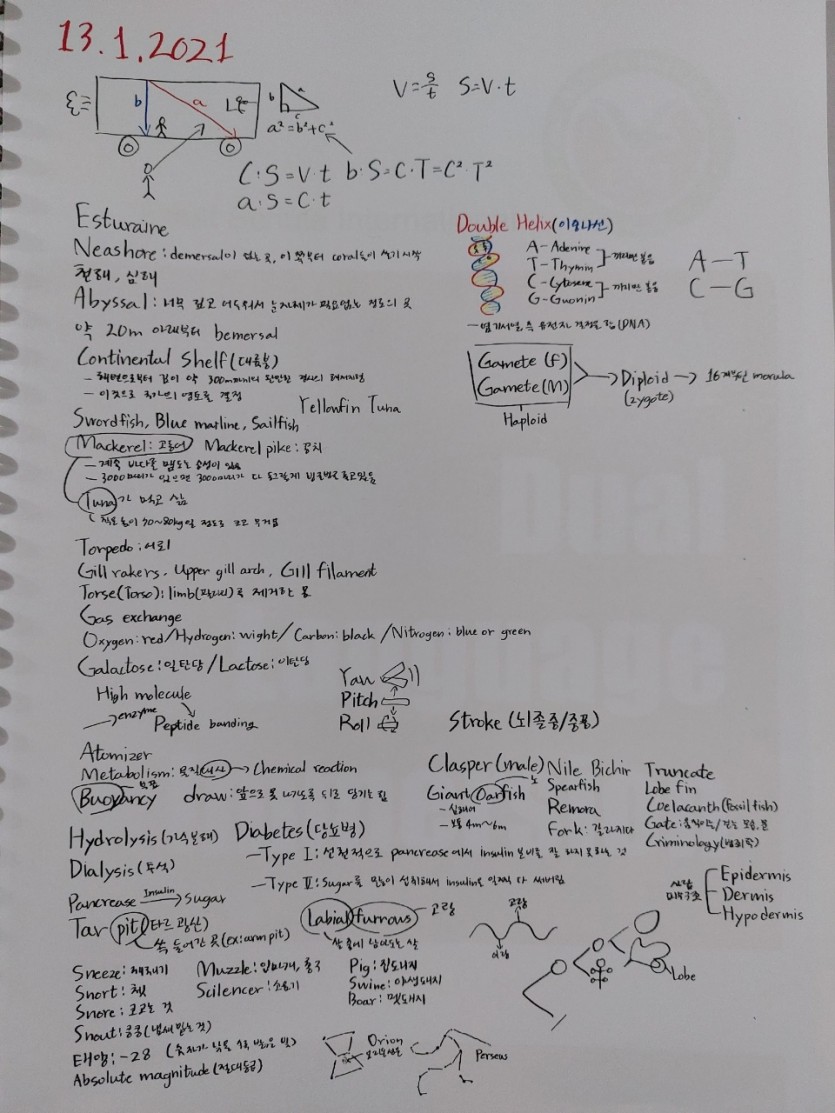 13.1.2021
V=s/t S=V·t
b a
b c
a²=b²+c²
C:S=V·t b·S=C·T=C²·T²
a·S=C·t
Esturaine
Neashore: demersal이 있는 곳, 이 쪽부터 coral들이 살기 시작
천해, 심해
Abyssal: 너무 깊고 어두워서 눈 자체가 필요없는 정도의 곳
약 20m 아래부터 bemersal
Continental Shelf(대륙붕)
- 해변으로부터 깊이 약 300m까지의 완만한 경사의 해저지형
- 이것으로 영토를 결정
Yellowfin Tuna
Swordfish, Blue marline, Sailfish
Mackerel: 고등어 Mackerel pike: 꽁치
- 계속 바다를 맴도는 습성이 있음
- 3000마리가 있으면 3000마리가 다 동그랗게
Tuna가 먹고 삶
70~80kg일 정도로 크고 무거움
Double Helix(이중나선)
A-Adenine
T-Thymin
C-Cytosine
G-Guonin
끼리만 붙음
끼리만 붙음
A—T
C—G
- 염기서열, 즉 유전자 (DNA)
Gamete (F)
Gamete(M)
Haploid
Diploid
(zygote)
morula
Torpedo: 어뢰
Gill rakers, Upper gill arch, Gill filament
Torse(Torso): limb(팔다리)를 제거한 몸
Gas exchange
Oxygen: red/Hydrogen: wight/Carbon: black/Nitrogen: blue or green
Galactose: 일탄당/Lactose: 이탄당
High molecule
enzyme
Peptide banding
Yaw
Pitch
Roll
Stroke (뇌졸중/중풍)
Atomizer
Metabolism: 물질대사 → Chemical reaction
부력
Buoyancy draw: 앞으로 못 나가도록 뒤로 당기는 힘
Clasper(male) Nile Bichir Truncate
Giant Oarfish Spearfish Lobe fin
노
- 심해어
- 보통 4m~6m
Remora
Fork: 갈라지다
Coelacanth(Fossil fish)
Criminology(범죄학)
Hydrolysis(가수분해) Diabetes(당뇨병)
- Type I: 선천적으로 pancrease에서 insulin 분비를 잘 하지 못하는 것
Dialysis(투석)
- Type II: Sugar를 많이 섭취해서 insulin을 다 써버림
Pancrease Insulin → Sugar
Tar pit(타르 광산)
쏙 들어간 곳(ex: arm pit)
Labial furrows - 고랑
고랑
이랑
사람
Epidermis
Dermis
Hypodermis
Lobe
Sneeze: 재채기 Muzzle: 입마개, 총구 Pig: 집돼지
Snort: 콧 Scilencer: 소음기 Swine: 야생돼지
Snore: 코고는 것 Boar: 멧돼지
Snout: 킁킁(냄새 맡는 것)
태양: -28 (숫자가 낮을 수록 밝은 빛)
Absolute magnitude(절대등급)
Orion
Perseus